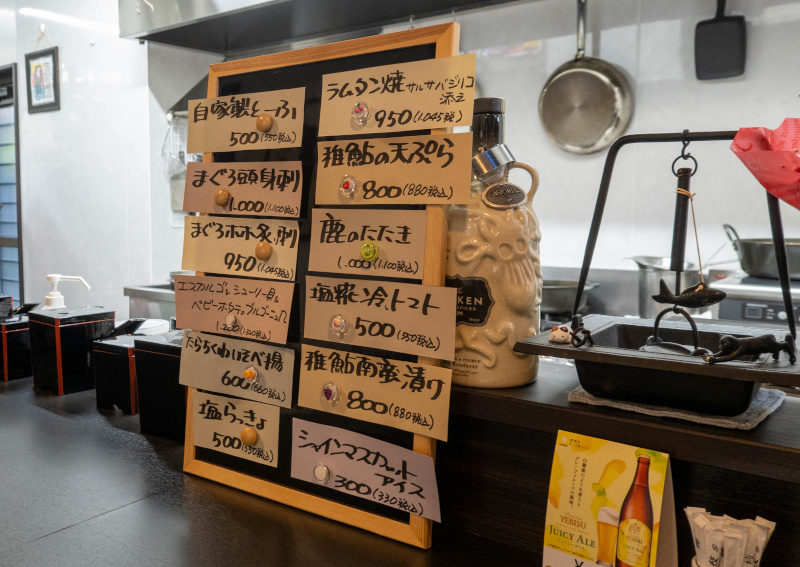 自家製とーふ
500(550税込)
まぐろ頭身刺
1.000(1.100税込)
まぐろホホ炙り刺
950(1.045税込)
エスカルゴ&シューリー貝&
ベビーホタテのブルゴーニュ
たらちくわいそべ揚
600(660税込)
塩らっきょ
500(550税込)
ラムタン焼サルサバジリコ
添え
950(1.045税込)
稚鮎の天ぷら
800(880税込)
鹿のたたき
1.000(1.100税込)
塩糀冷トマト
500(550税込)
稚鮎南蛮漬け
800(880税込)
シャインマスカット
アイス
300(330税込)
KEN
YEBISU
JUICY ALE